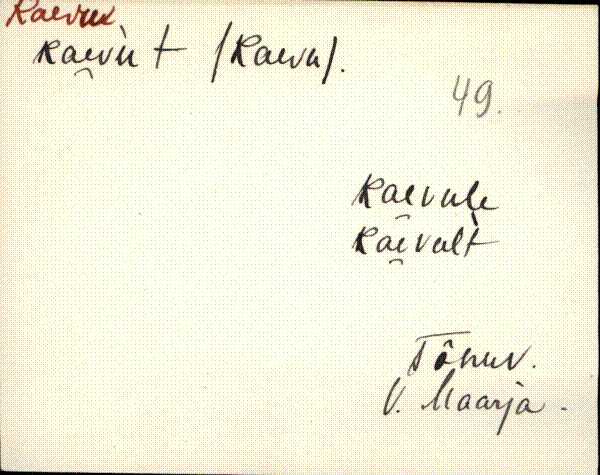 Kaevu
kaevùt (Kaevu).
49.
Kaevule
kaevult
Tõnuv.
V. Maarja.